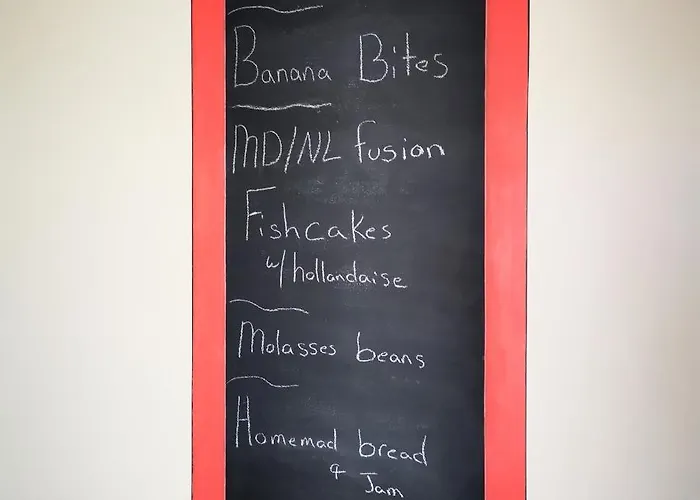 Banana Bites
MD/NL fusion
Fishcakes
w/ hollandaise
Molasses beans
Homemad bread
& Jam